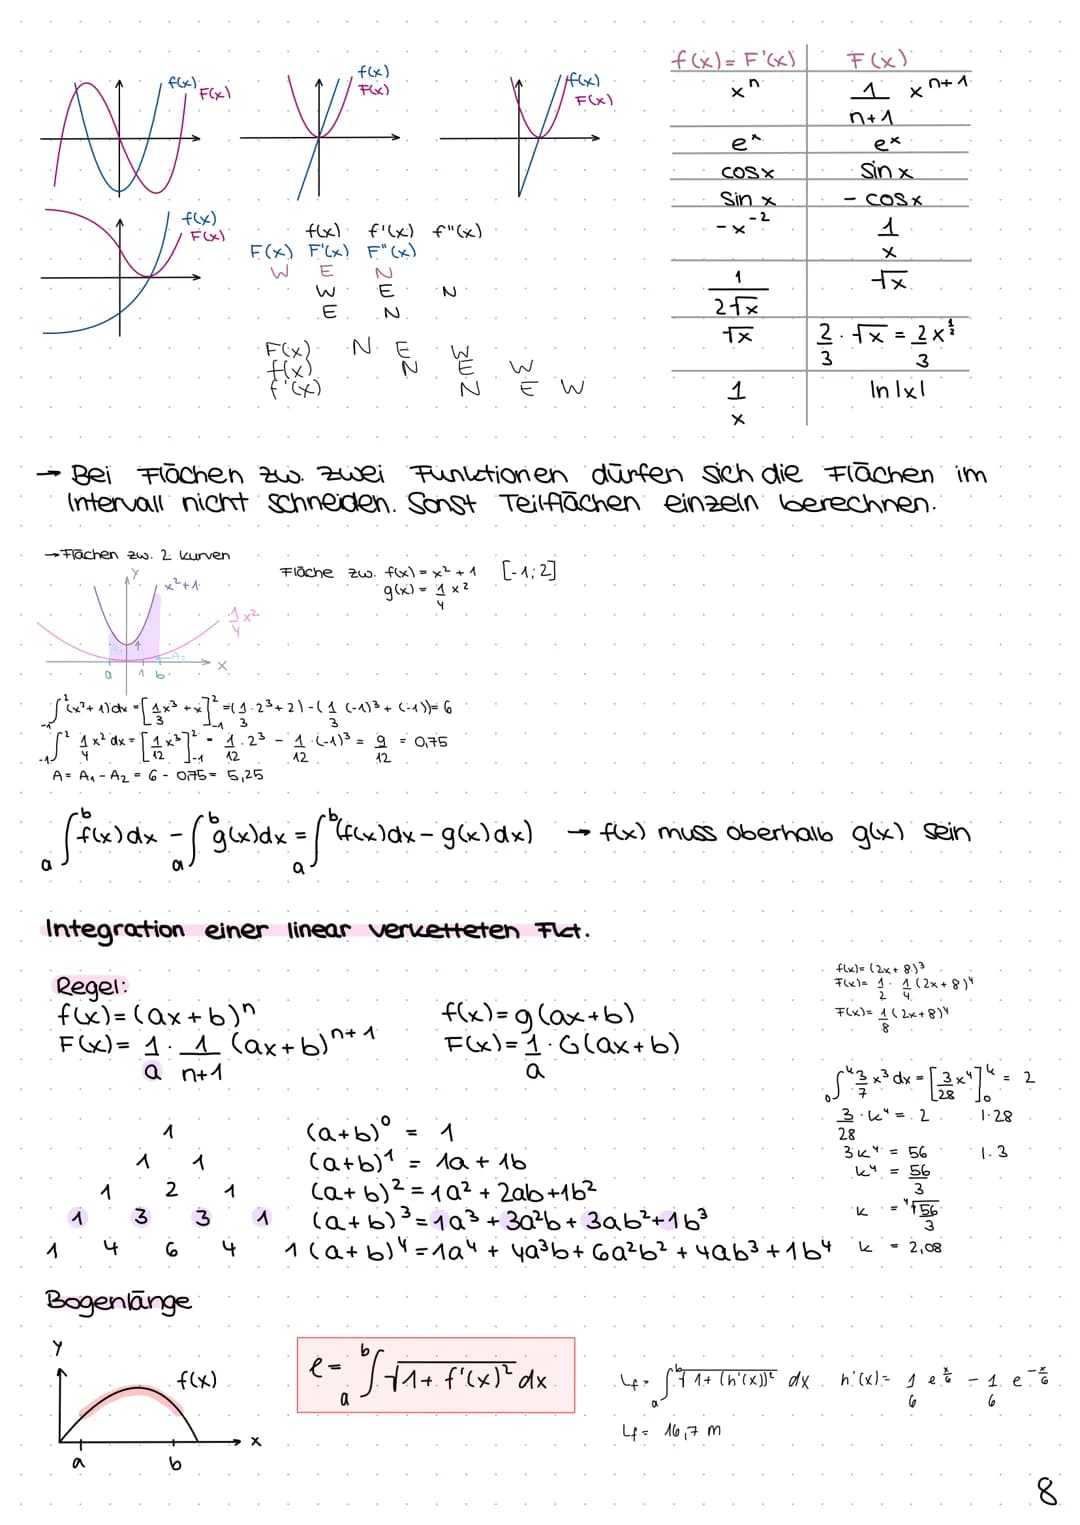 f(x) F(x)
f(x)
F(x)
f(x)
F(x)
f(x)
F(x)
f(x) f'(x) f"(x)
F(x) F'(x) F"(x)
W E N
W E N
E N
F(x) N E W
f(x) N E W
f'(x) N E W
f(x) = F'(x) F(x)
xⁿ 1/(n+1) xⁿ⁺¹
eˣ eˣ
cosx sin x
sin x - cosx
-x⁻² 1/x
1/(2√x) √x
√x 2/3 · √x = 2/3 x^(1/2)
1/x ln |x|
→ Bei Flächen zw. zwei Funktionen dürfen sich die Flächen im
Intervall nicht schneiden. Sonst Teilflächen einzeln berechnen.
→ Flächen zw. 2 Kurven
Fläche zw. f(x) = x² + 1 [-1; 2]
g(x) = 1/4 x²
y
x²+1
1/4 x²
1
A₂
x
a 1 b
∫₋₁² (x²+1)dx = [1/3 x³ + x]₋₁² = (1/3 · 2³ + 2) - (1/3 (-1)³ + (-1)) = 6
∫₋₁² 1/4 x² dx = [1/12 x³]₋₁² = 1/12 · 2³ - 1/12 · (-1)³ = 9/12 = 0,75
A = A₁ - A₂ = 6 - 0,75 = 5,25
∫ₐᵇ f(x) dx - ∫ₐᵇ g(x) dx = ∫ₐᵇ (f(x) dx - g(x) dx) → f(x) muss oberhalb g(x) sein
Integration einer linear verketteten Fkt.
Regel:
f(x) = (ax+b)ⁿ
F(x) = 1/a · 1/(n+1) (ax+b)ⁿ⁺¹
f(x) = g(ax+b)
F(x) = 1/a · G(ax+b)
f(x) = (2x+8)³
F(x) = 1/2 · 1/4 (2x+8)⁴
F(x) = 1/8 (2x+8)⁴
∫₀ᵏ 3/7 x³ dx = [3/28 x⁴]₀ᵏ = 2
3/28 · k⁴ = 2 | · 28
3k⁴ = 56 | : 3
k⁴ = 56/3
k = ⁴√(56/3)
k = 2,08
1 (a+b)⁰ = 1
1 1 (a+b)¹ = 1a + 1b
1 2 1 (a+b)² = 1a² + 2ab + 1b²
1 3 3 1 (a+b)³ = 1a³ + 3a²b + 3ab² + 1b³
1 4 6 4 1 (a+b)⁴ = 1a⁴ + 4a³b + 6a²b² + 4ab³ + 1b⁴
Bogenlänge
y
f(x)
x
a b
ℓ = ∫ₐᵇ √(1 + f'(x)²) dx
Lf = ∫ₐᵇ √(1 + (h'(x))²) dx h'(x) = 1/6 e^(x/6) - 1/6 e^(-x/6)
Lf = 16,7 m
8